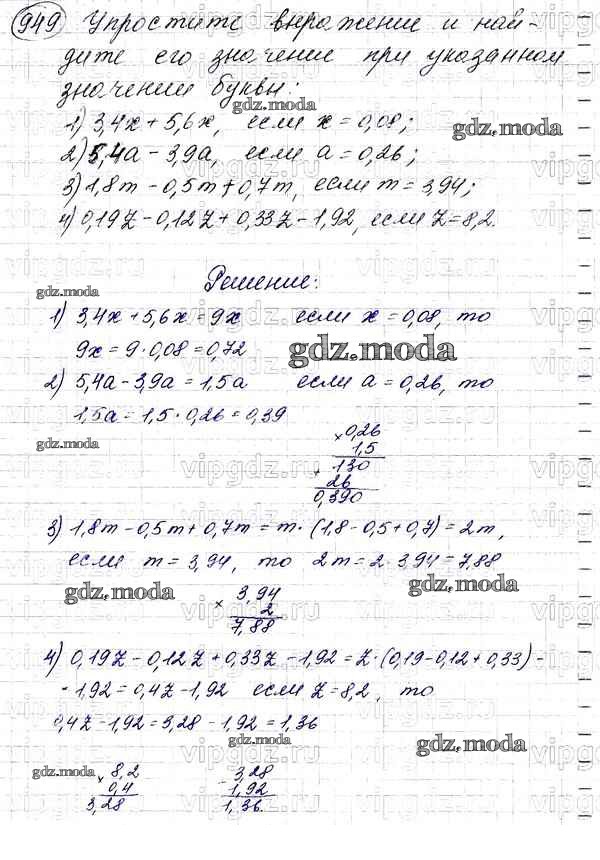 949 Упростите выражение и най-
дите его значение при указанном
значении буквы:
gdz.moda
1) 3,4x + 5,6x, если x = 0,08;
gdz.moda
2) 5,4a - 3,9a, если a = 0,26;
3) 1,8m - 0,5m + 0,7m, если m = 3,94;
4) 0,19z - 0,12z + 0,33z - 1,92, если z = 8,2.
vipgdz.ru
Решение:
gdz.moda
1) 3,4x + 5,6x = 9x если x = 0,08, то
9x = 9 · 0,08 = 0,72
gdz.moda
2) 5,4a - 3,9a = 1,5a если a = 0,26, то
1,5a = 1,5 · 0,26 = 0,39
gdz.moda
× 0,26
1,5
+ 130
26
0,390
3) 1,8m - 0,5m + 0,7m = m · (1,8 - 0,5 + 0,7) = 2m,
если m = 3,94, то 2m = 2 · 3,94 = 7,88
gdz.moda
gdz.moda
× 3,94
2
7,88
4) 0,19z - 0,12z + 0,33z - 1,92 = z · (0,19 - 0,12 + 0,33) -
- 1,92 = 0,4z - 1,92 если z = 8,2, то
0,4z - 1,92 = 3,28 - 1,92 = 1,36
gdz.moda
gdz.moda
gdz.moda
× 8,2
0,4
3,28
- 3,28
1,92
1,36